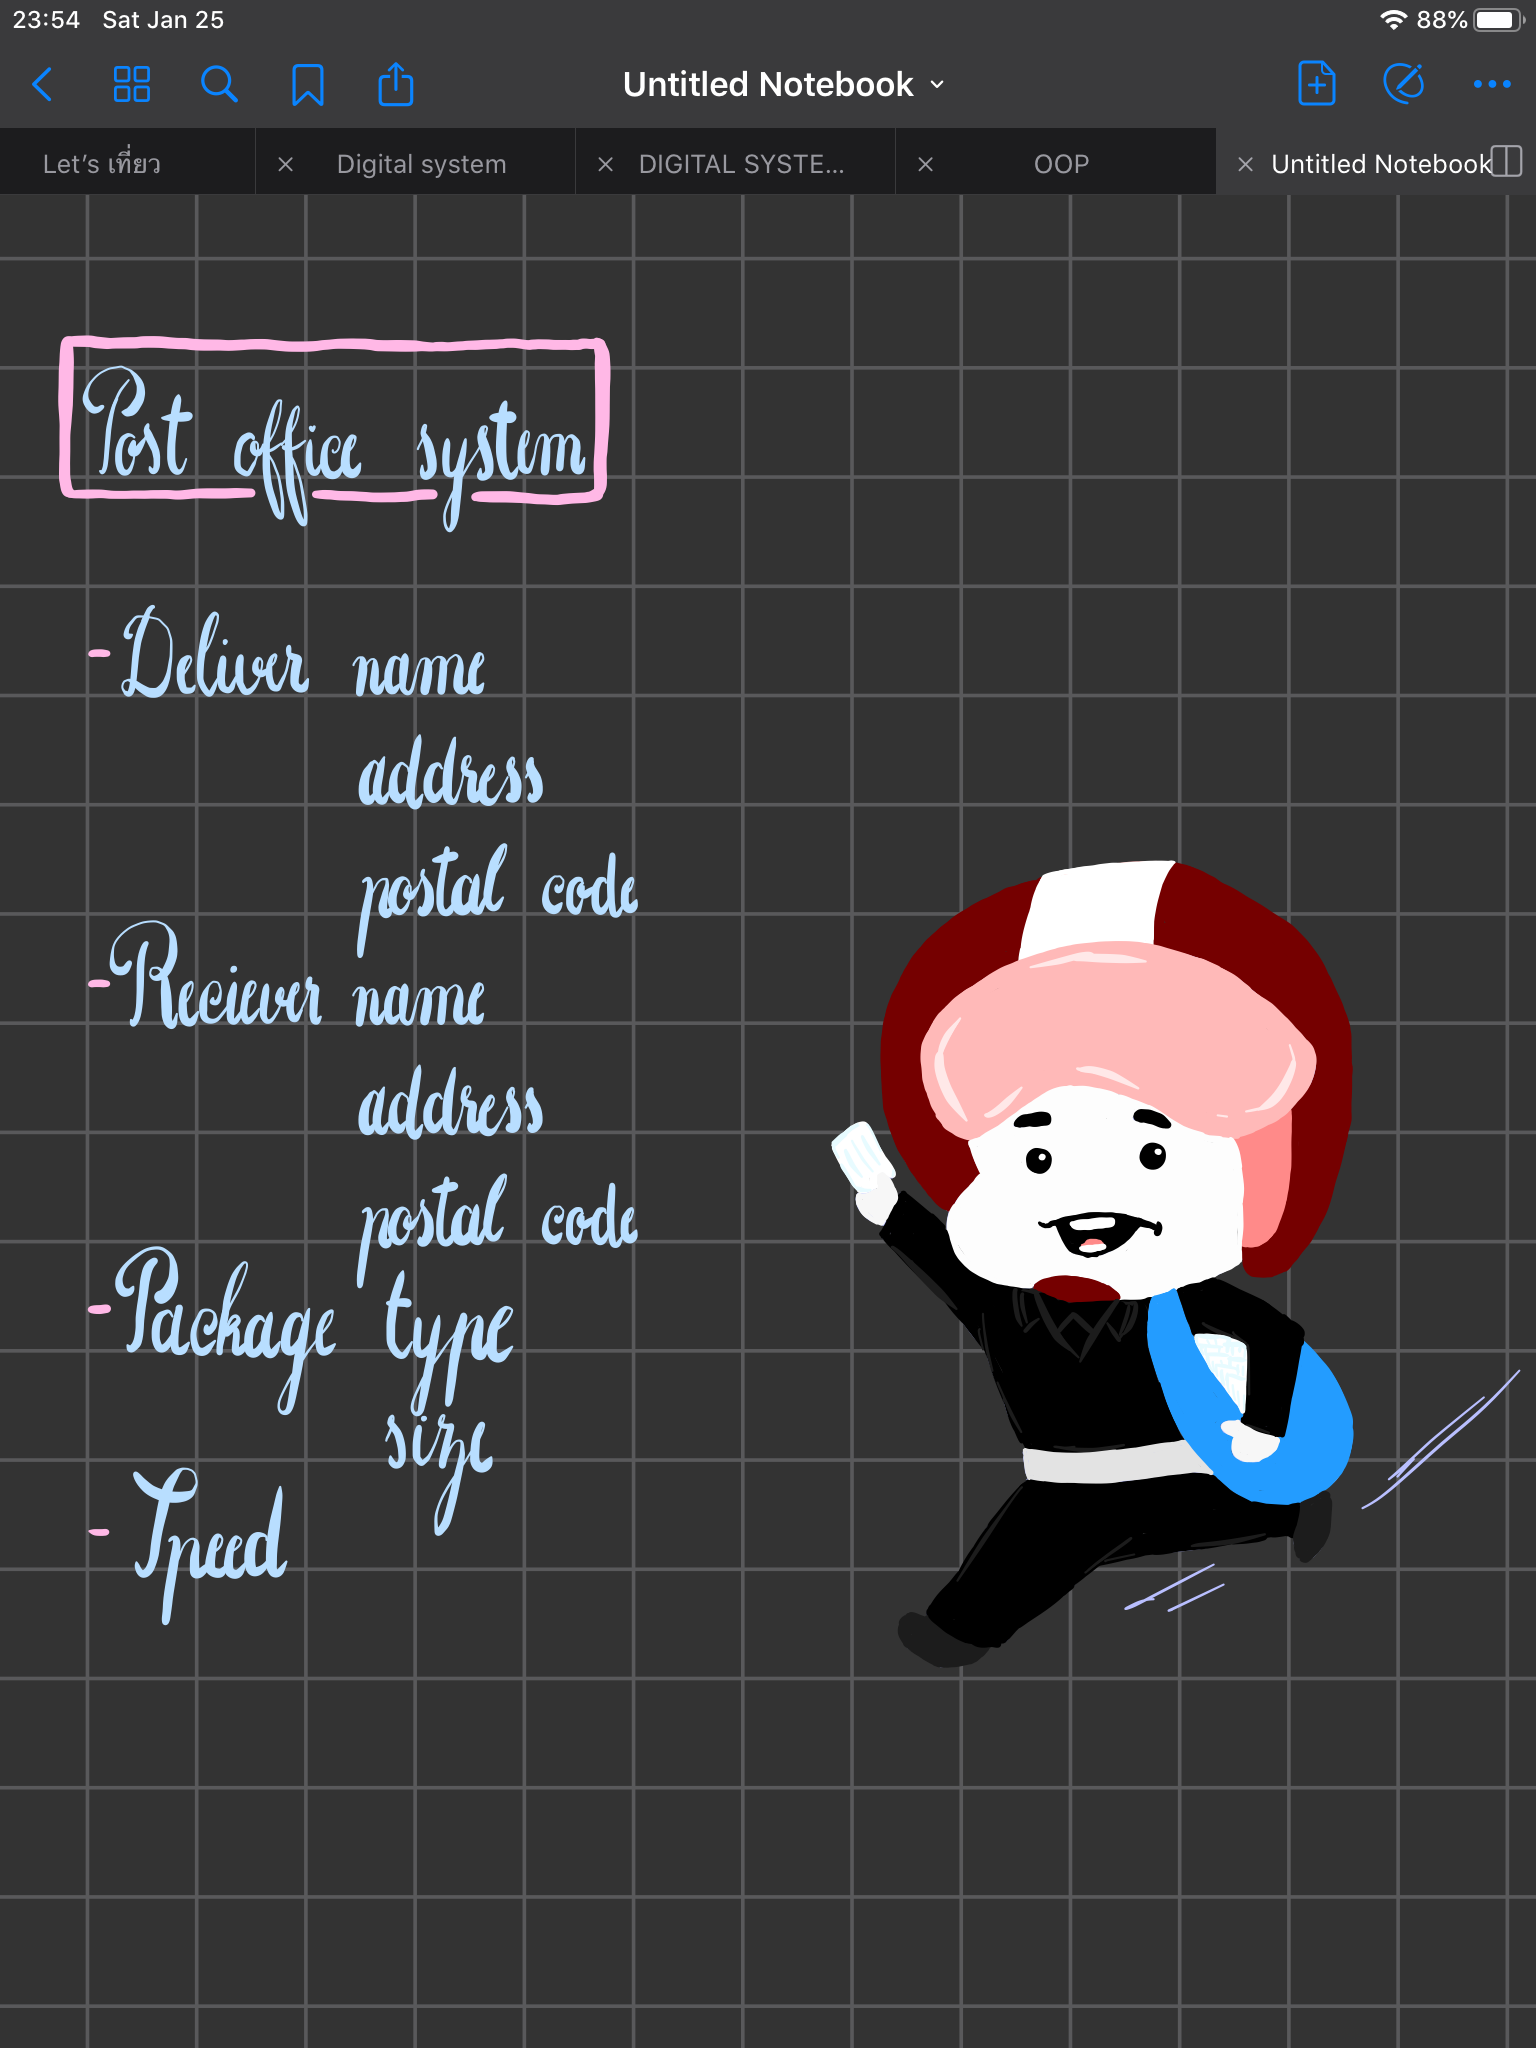 23:54 Sat Jan 25 88%
Untitled Notebook
Let's เที่ยว Digital system DIGITAL SYSTE... OOP Untitled Notebook
Post office system
- Deliver name
address
postal code
- Reciever name
address
postal code
- Package type
size
- Speed